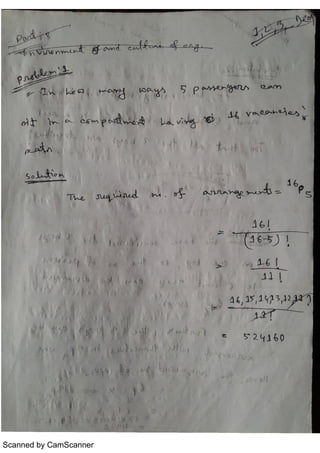 Part: 5
1, 2, 3,
Environment and culture of
Problem: 1
In how many ways 5 passengers can
sit in a compartment having 16 vacancies
Solution
The required no. of arrangements = 16P5
= 16!
(16-5)!
= 16!
11!
= 16,15,14,13,12,11!
11!
= 524160
Scanned by CamScanner